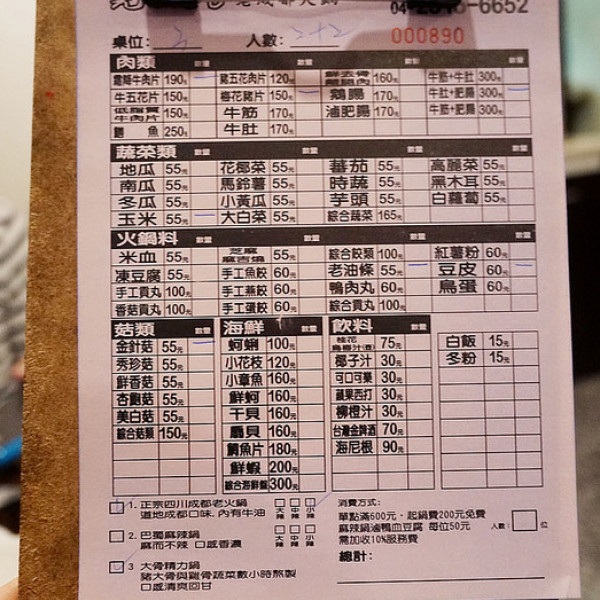 老成都火鍋 04-2346-6652
桌位: 3 人數: 2+2 000890
肉類 數量 數量 數量 數量
霜降牛肉片 190元 豬五花肉片 120元 160元 牛筋+牛肚 300元
牛五花片 150元 梅花豬片 150元 鴨腸 170元 牛肚+肥腸 300元
牛肉片 150元 牛筋 170元 滷肥腸 170元 牛筋+肥腸 300元
鱈魚 250元 牛肚 170元
蔬菜類 數量 數量 數量 數量
地瓜 55元 花椰菜 55元 蕃茄 55元 高麗菜 55元
南瓜 55元 馬鈴薯 55元 時蔬 55元 黑木耳 55元
冬瓜 55元 小黃瓜 55元 芋頭 55元 白蘿蔔 55元
玉米 55元 大白菜 55元 綜合蔬菜 165元
火鍋料 數量 數量 數量 數量
米血 55元 55元 綜合餃類 100元 紅薯粉 60元
凍豆腐 55元 手工魚餃 60元 老油條 55元 豆皮 60元
手工貢丸 100元 手工燕餃 60元 鴨肉丸 60元 鳥蛋 60元
香菇貢丸 100元 手工蛋餃 60元 綜合貢丸 100元
菇類 數量 海鮮 數量 飲料 數量
金針菇 55元 蚵蜊 100元 桂花烏梅汁(壺) 75元 白飯 15元
秀珍菇 55元 小花枝 120元 椰子汁 30元 冬粉 15元
鮮香菇 55元 小章魚 160元 可口可樂 30元
杏鮑菇 55元 鮮蚵 160元 蘋果西打 30元
美白菇 55元 干貝 160元 柳橙汁 30元
綜合菇類 150元 扇貝 160元 台灣金牌酒 70元
鯛魚片 180元 海尼根 90元
鮮蝦 200元
綜合海鮮盤 300元
1. 正宗四川成都老火鍋 大辣 中辣 小辣
道地成都口味, 內有牛油
2. 巴蜀麻辣鍋 大辣 中辣 小辣
麻而不辣 口感香濃
3 大骨精力鍋
豬大骨與雞骨蔬菜數小時熬製
口感清爽回甘
消費方式:
單點滿600元,起鍋費200元免費
麻辣鍋滷鴨血豆腐 每位50元 人數: 位
需加收10%服務費
總計: